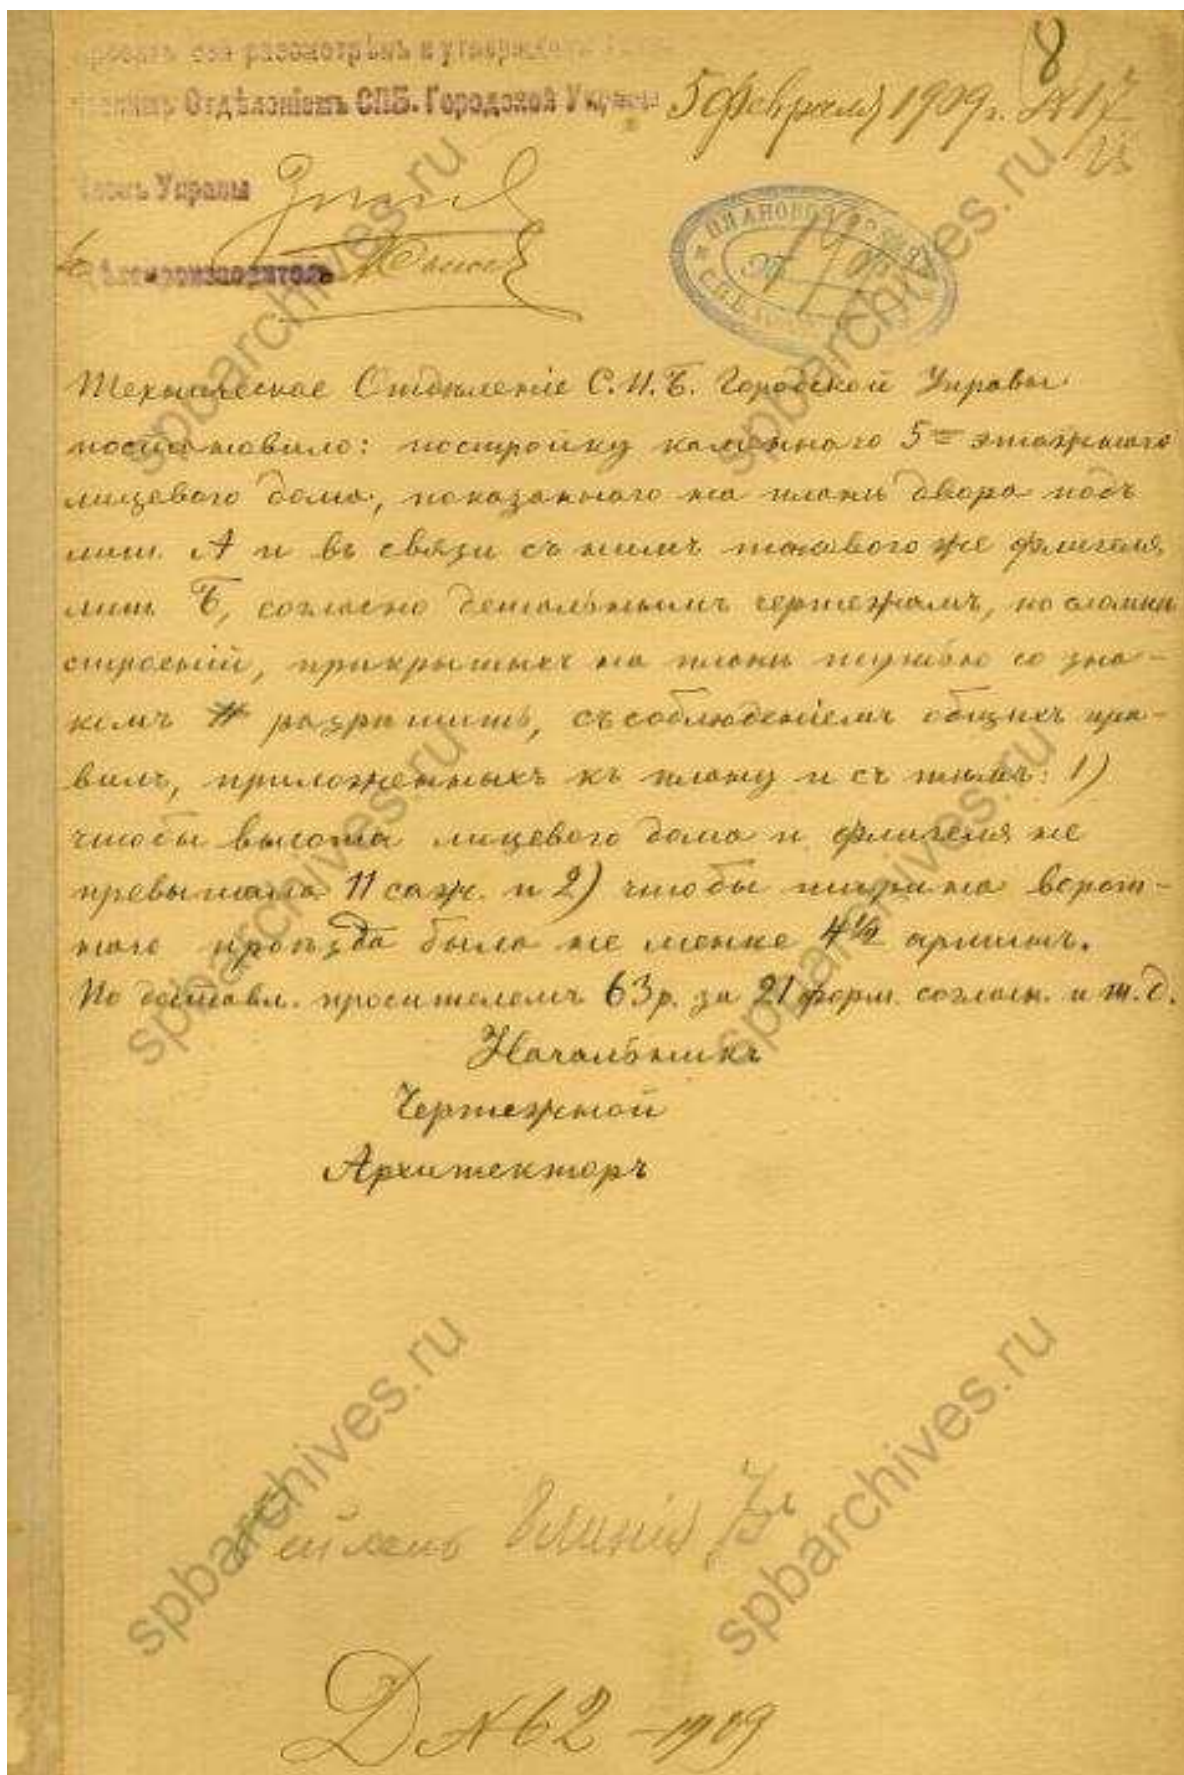 8
проектъ сей разсмотрѣнъ и утвержденъ
Отдѣленіемъ СПБ. Городской Управы 5 Февраля 1909 г. № 17
Членъ Управы
Дѣлопроизводитель
Техническое Отдѣленіе С.П.Б. Городской Управы
постановило: постройку каменнаго 5=этажнаго
лицевого дома, показаннаго на планѣ двора подъ
лит. А и въ связи съ нимъ таковаго же флигеля
лит Б, согласно детальнымъ чертежамъ, по сломкѣ
строеній, прикрытыхъ на планѣ тушью со зна-
комъ # разрѣшить, съ соблюденіемъ общихъ пра-
вилъ, приложенныхъ къ плану и съ тѣмъ: 1)
чтобы высота лицевого дома и флигеля не
превышала 11 саж. и 2) чтобы ширина ворот-
наго проѣзда была не менѣе 4 1/2 аршинъ.
По доставл. просителемъ 63 р. за 21 форм. согласн. и т.д.
Начальникъ
Чертежной
Архитекторъ
Д № 62 - 1909
spbarchives.ru
spbarchives.ru
spbarchives.ru
spbarchives.ru
spbarchives.ru
spbarchives.ru